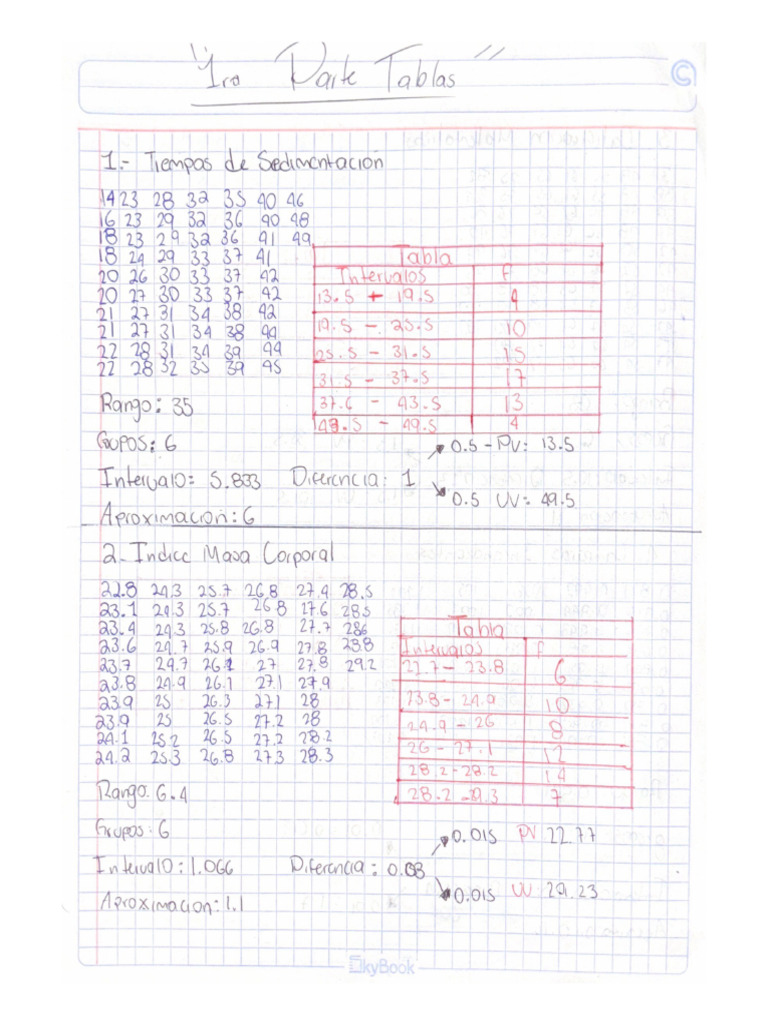 "1ra Parte Tablas"
1.- Tiempos de Sedimentacion
14 23 28 32 35 40 46
16 23 29 32 36 40 48
18 23 29 32 36 41 49
18 24 29 33 37 41
20 26 30 33 37 42
20 27 30 33 37 42
21 27 31 34 38 42
21 27 31 34 38 44
22 28 31 34 39 44
22 28 32 35 39 45
Tabla
Intervalos f
13.5 - 19.5 4
19.5 - 25.5 10
25.5 - 31.5 15
31.5 - 37.5 17
37.6 - 43.5 13
43.5 - 49.5 4
Rango: 35
Grupos: 6
0.5 - PV: 13.5
Intervalo: 5.833 Diferencia: 1
0.5 UV: 49.5
Aproximacion: 6
2.- Indice Masa Corporal
22.8 24.3 25.7 26.8 27.4 28.5
23.1 24.3 25.7 26.8 27.6 28.5
23.4 24.3 25.8 26.8 27.7 286
23.6 24.7 25.9 26.9 27.8 28.8
23.7 24.7 26.1 27 27.8 29.2
23.8 24.9 26.1 27.1 27.9
23.9 25 26.3 271 28
23.9 25 26.5 27.2 28
24.1 25.2 26.5 27.2 28.2
24.2 25.3 26.8 27.3 28.3
Tabla
Intervalos f
22.7 - 23.8 6
23.8 - 24.9 10
24.9 - 26 8
26 - 27.1 12
28.2 - 28.2 14
28.2 - 29.3 7
Rango: 6.4
Grupos: 6
0.015 PV 22.77
Intervalo: 1.066 Diferencia: 0.03
0.015 UV 29.23
Aproximacion: 1.1
SkyBook